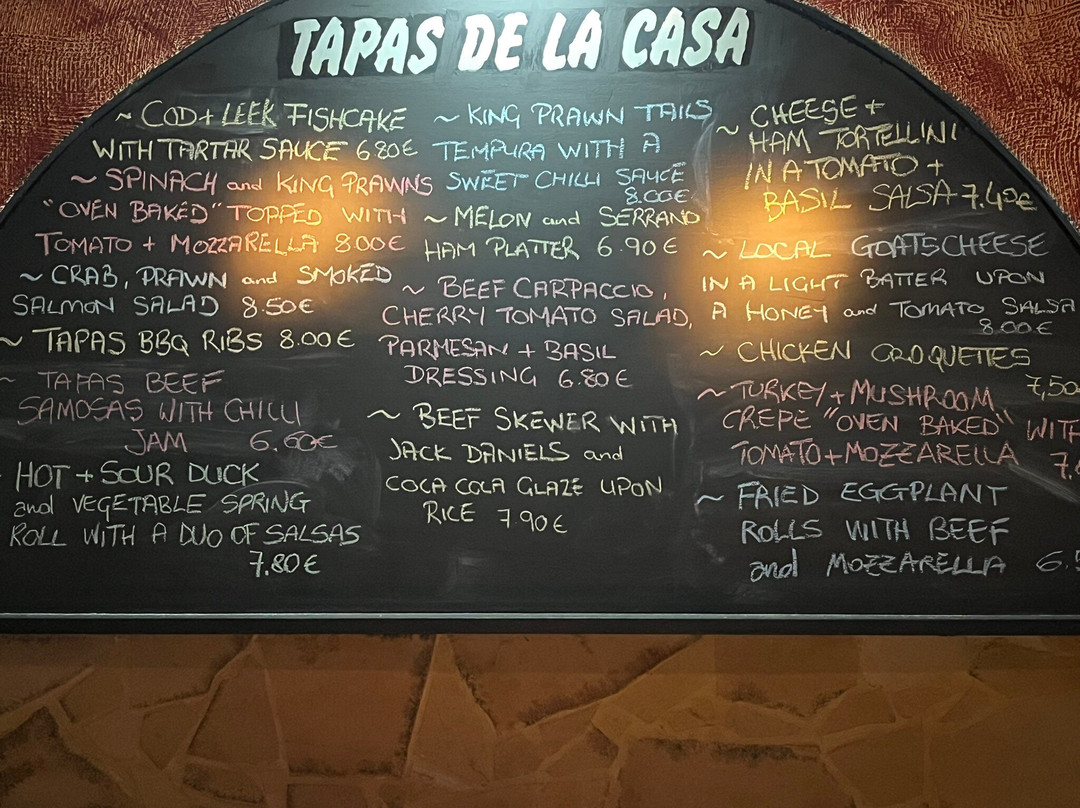 TAPAS DE LA CASA
~ COD + LEEK FISHCAKE
WITH TARTAR SAUCE 6.80€
~ SPINACH and KING PRAWNS
"OVEN BAKED" TOPPED WITH
TOMATO + MOZZARELLA 8.00€
~ CRAB, PRAWN and SMOKED
SALMON SALAD 8.50€
~ TAPAS BBQ RIBS 8.00€
~ TAPAS BEEF
SAMOSAS WITH CHILLI
JAM 6.60€
HOT + SOUR DUCK
and VEGETABLE SPRING
ROLL WITH A DUO OF SALSAS
7.80€
~ KING PRAWN TAILS
TEMPURA WITH A
SWEET CHILLI SAUCE
8.00€
~ MELON and SERRANO
HAM PLATTER 6.90€
~ BEEF CARPACCIO,
CHERRY TOMATO SALAD,
PARMESAN + BASIL
DRESSING 6.80€
~ BEEF SKEWER WITH
JACK DANIELS and
COCA COLA GLAZE UPON
RICE 7.90€
~ CHEESE +
HAM TORTELLINI
IN A TOMATO +
BASIL SALSA 7.40€
~ LOCAL GOATSCHEESE
IN A LIGHT BATTER UPON
A HONEY and TOMATO SALSA
8.00€
~ CHICKEN CROQUETTES
7,50
~ TURKEY + MUSHROOM
CREPE "OVEN BAKED" WITH
TOMATO + MOZZARELLA
~ FRIED EGGPLANT
ROLLS WITH BEEF
and MOZZARELLA